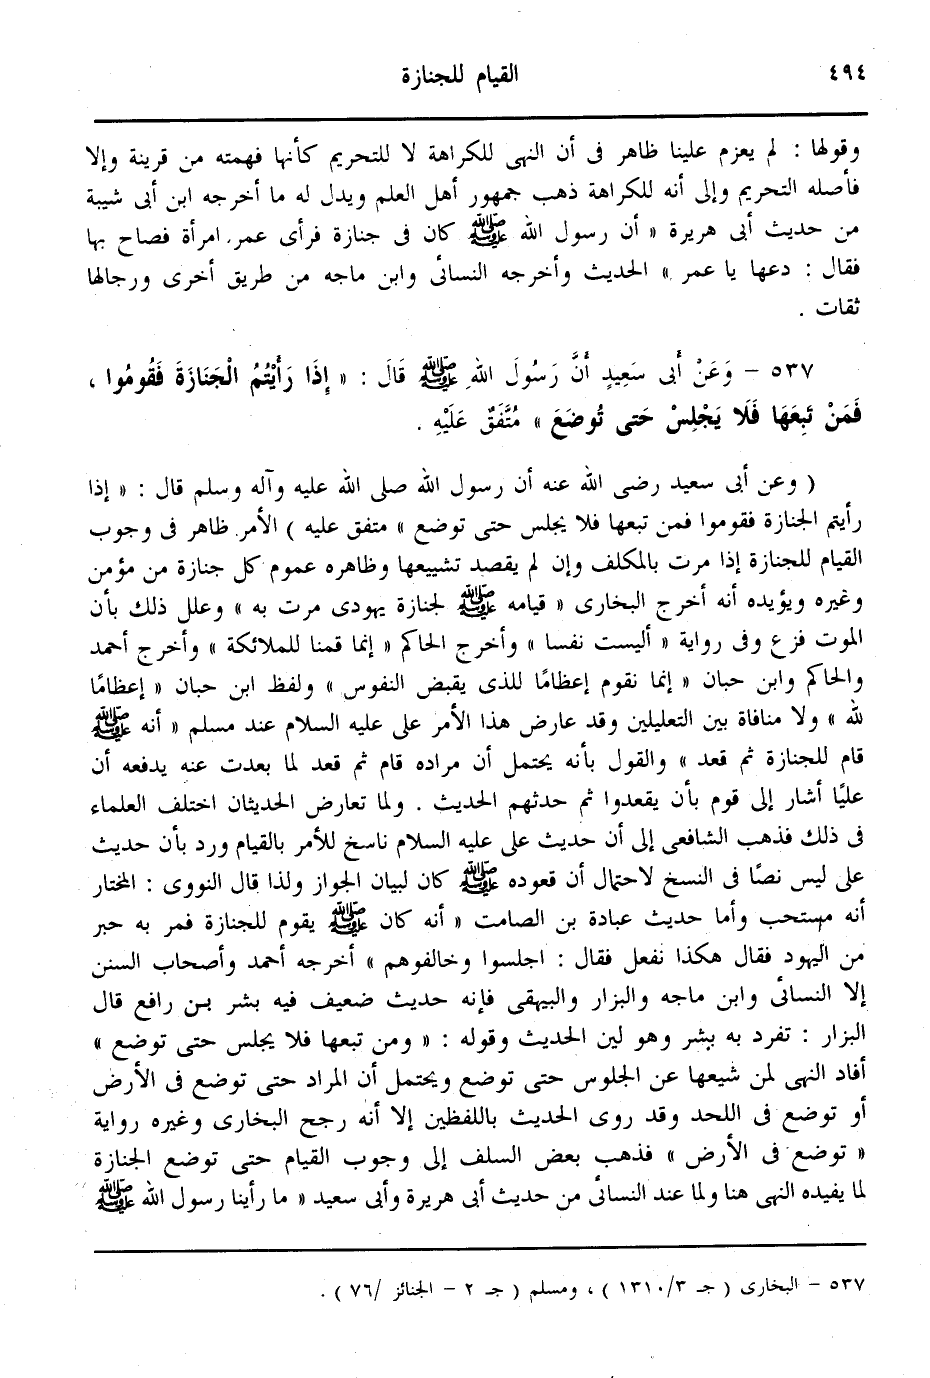 ٤٩٤
القيام للجنازة
وقولها : لم يعزم علينا ظاهر فى أن النهى للكراهة لا للتحريم كأنها فهمته من قرينة وإلا
فأصله التحريم وإلى أنه للكراهة ذهب جمهور أهل العلم ويدل له ما أخرجه ابن أبى شيبة
من حديث أبى هريرة « أن رسول الله ﷺ كان فى جنازة فرأى عمر امرأة فصاح بها
فقال : دعها يا عمر » الحديث وأخرجه النسائى وابن ماجه من طريق أخرى ورجالها
ثقات .
٥٣٧ – وَعَنْ أَبى سَعِيدٍ أَنَّ رَسُولَ اللهِ ﷺ قَالَ : « إِذَا رَأَيْتُمُ الْجَنَازَةَ فَقُومُوا ،
فَمَنْ تَبِعَهَا فَلَا يَجْلِسْ حَتى تُوضَعَ » مُتَّفَقٌ عَلَيْهِ .
( وعن أبى سعيد رضى الله عنه أن رسول الله صلى الله عليه وآله وسلم قال : « إذا
رأيتم الجنازة فقوموا فمن تبعها فلا يجلس حتى توضع » متفق عليه ) الأمر ظاهر فى وجوب
القيام للجنازة إذا مرت بالمكلف وإن لم يقصد تشييعها وظاهره عموم كل جنازة من مؤمن
وغيره ويؤيده أنه أخرج البخارى « قيامه ﷺ لجنازة يهودى مرت به » وعلل ذلك بأن
الموت فزع وفى رواية « أليست نفسا » وأخرج الحاكم « إنما قمنا للملائكة » وأخرج أحمد
والحاكم وابن حبان « إنما نقوم إعظامًا للذى يقبض النفوس » ولفظ ابن حبان « إعظامًا
لله » ولا منافاة بين التعليلين وقد عارض هذا الأمر على عليه السلام عند مسلم « أنه ﷺ
قام للجنازة ثم قعد » والقول بأنه يحتمل أن مراده قام ثم قعد لما بعدت عنه يدفعه أن
عليًا أشار إلى قوم بأن يقعدوا ثم حدثهم الحديث . ولما تعارض الحديثان اختلف العلماء
فى ذلك فذهب الشافعى إلى أن حديث على عليه السلام ناسخ للأمر بالقيام ورد بأن حديث
على ليس نصًا فى النسخ لاحتمال أن قعوده ﷺ كان لبيان الجواز ولذا قال النووى : المختار
أنه مستحب وأما حديث عبادة بن الصامت « أنه كان ﷺ يقوم للجنازة فمر به حبر
من اليهود فقال هكذا نفعل فقال : اجلسوا وخالفوهم » أخرجه أحمد وأصحاب السنن
إلا النسائى وابن ماجه والبزار والبيهقى فإنه حديث ضعيف فيه بشر بن رافع قال
البزار : تفرد به بشر وهو لين الحديث وقوله : « ومن تبعها فلا يجلس حتى توضع »
أفاد النهى لمن شيعها عن الجلوس حتى توضع ويحتمل أن المراد حتى توضع فى الأرض
أو توضع فى اللحد وقد روى الحديث باللفظين إلا أنه رجح البخارى وغيره رواية
« توضع فى الأرض » فذهب بعض السلف إلى وجوب القيام حتى توضع الجنازة
لما يفيده النهى هنا ولما عند النسائى من حديث أبى هريرة وأبى سعيد « ما رأينا رسول الله ﷺ
٥٣٧ – البخارى ( جـ ١٣١٠/٣ ) ، ومسلم ( جـ ٢ – الجنائز /٧٦ ) .